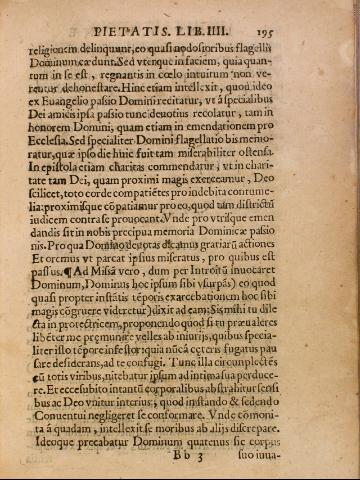 PIETATIS. LIB. IIII. 195
religionem delinquunt, eo quasi nodosioribus flagellis
Dominum cædunt. Sed vtenque in faciem, quia quan-
tum in se est, regnantis in cœlo intuitum non ve-
rentur dehonestare. Hinc etiam intellexit, quod ideo
ex Euangelio passio Domini recitatur, vt à specialibus
Dei amicis ipsa passio tunc deuotius recolatur, tam in
honorem Domini, quam etiam in emendationem pro
Ecclesia. Sed specialiter Domini flagellatio bis memo-
ratur, quæ ipso die huic fuit tam miserabiliter ostensa.
In epistola etiam charitas commendatur, vt in chari-
tate tam Dei, quam proximi magis exerceamur, Deo
scilicet, toto corde compatiētes pro indebita contume-
lia: proximisque cōpatiamur pro eo, quod tam districtū
iudicem contra se prouocant. Vnde pro vtrisque emen
dandis sit in nobis præcipua memoria Dominicæ passio
nis. Pro qua Domino deuotas dicamus gratiarū actiones
Et oremus vt parcat ipsius miseratus, pro quibus est
passus. ¶ Ad Missā vero, dum per Introitū inuocaret
Dominum, Dominus hoc ipsum sibi vsurpās) eo quod
quasi propter instātis tēporis exacerbationem hoc sibi
magis cōgruere videretur) dixit ad eam: Sis mihi tu dile
cta in protectricem, proponendo quod si tu præualeres
libēter me præmunire velles ab iniurijs, quibus specia-
liter isto tēpore infestor; quia nūc à cęteris fugatus pau
sare desiderans, ad te confugi. Tunc illa circumplectēs
eū totis viribus, nitebatur ipsum ad intima sua perduce-
re. Et ecce subito intantū corporalibus abstrahitur sensi
bus ac Deo vnitur interius, quod instando & sedendo
Conuentui negligeret se conformare. Vnde cōmoni-
ta à quadam, intellexit se moribus ab alijs discrepare.
Ideoque precabatur Dominum quatenus sic corpus
B b 3 suo iuua-